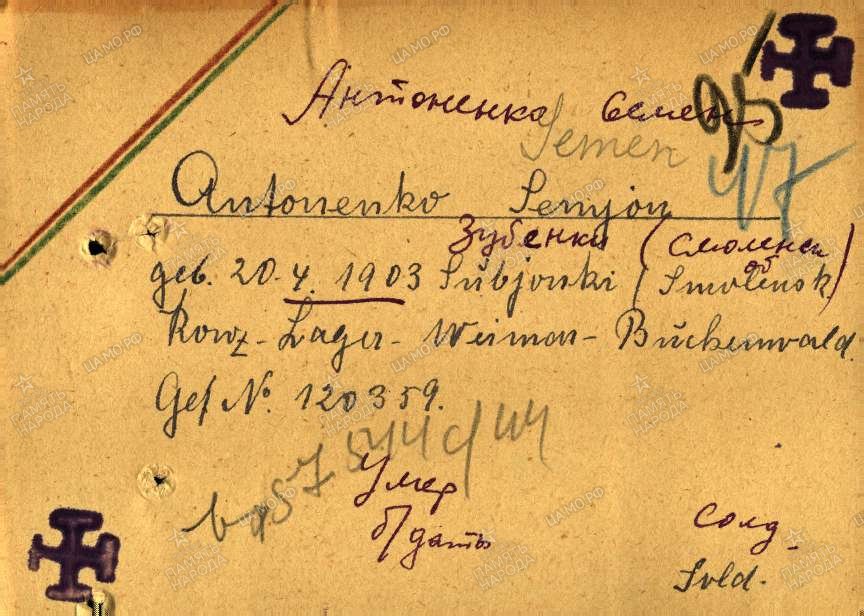 Антоненко Семен
Semen
95
47
Antonenko Semjon
Зубенки (Смоленск об)
geb. 20.4.1903 Subjonki (Smolensk)
Konz-Lager-Weimar-Buchenwald.
Gef № 120359.
Умер
б/даты
солд.
Sold.